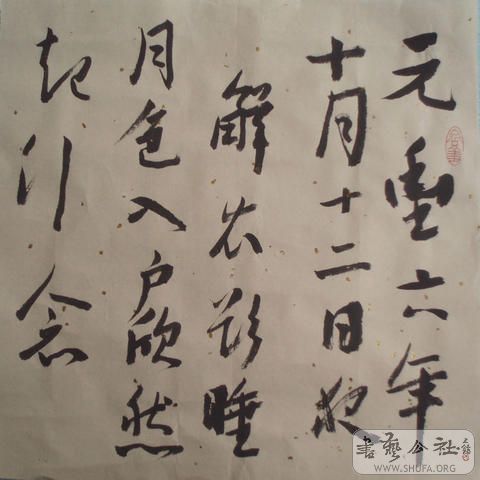 元豊六年
十月十二日夜
解衣欲睡
月色入户欣然
起行念
書藝公社
WWW.SHUFA.ORG